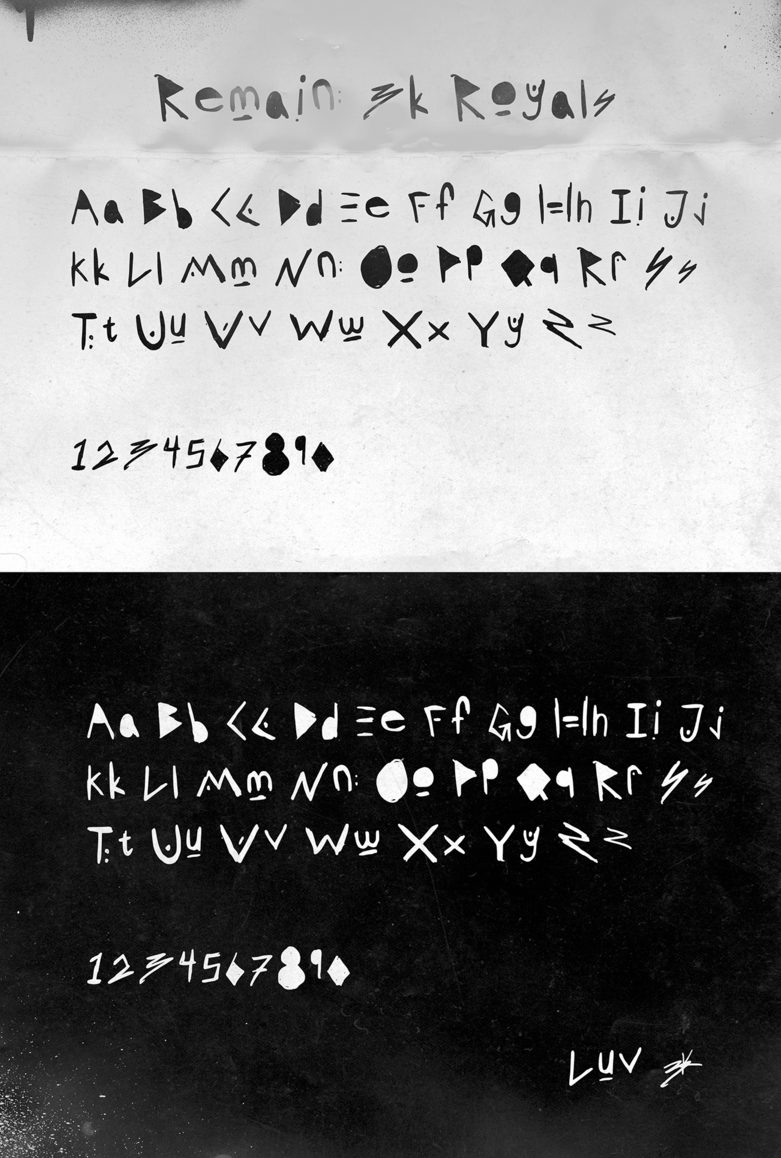 Remain 3k Royals
Aa Bb Cc Dd Ee Ff Gg Hh Ii Jj
Kk Ll Mm Nn Oo Pp Qq Rr Ss
Tt Uu Vv Ww Xx Yy Zz
1234567890
Aa Bb Cc Dd Ee Ff Gg Hh Ii Jj
Kk Ll Mm Nn Oo Pp Qq Rr Ss
Tt Uu Vv Ww Xx Yy Zz
1234567890
Luv 3k